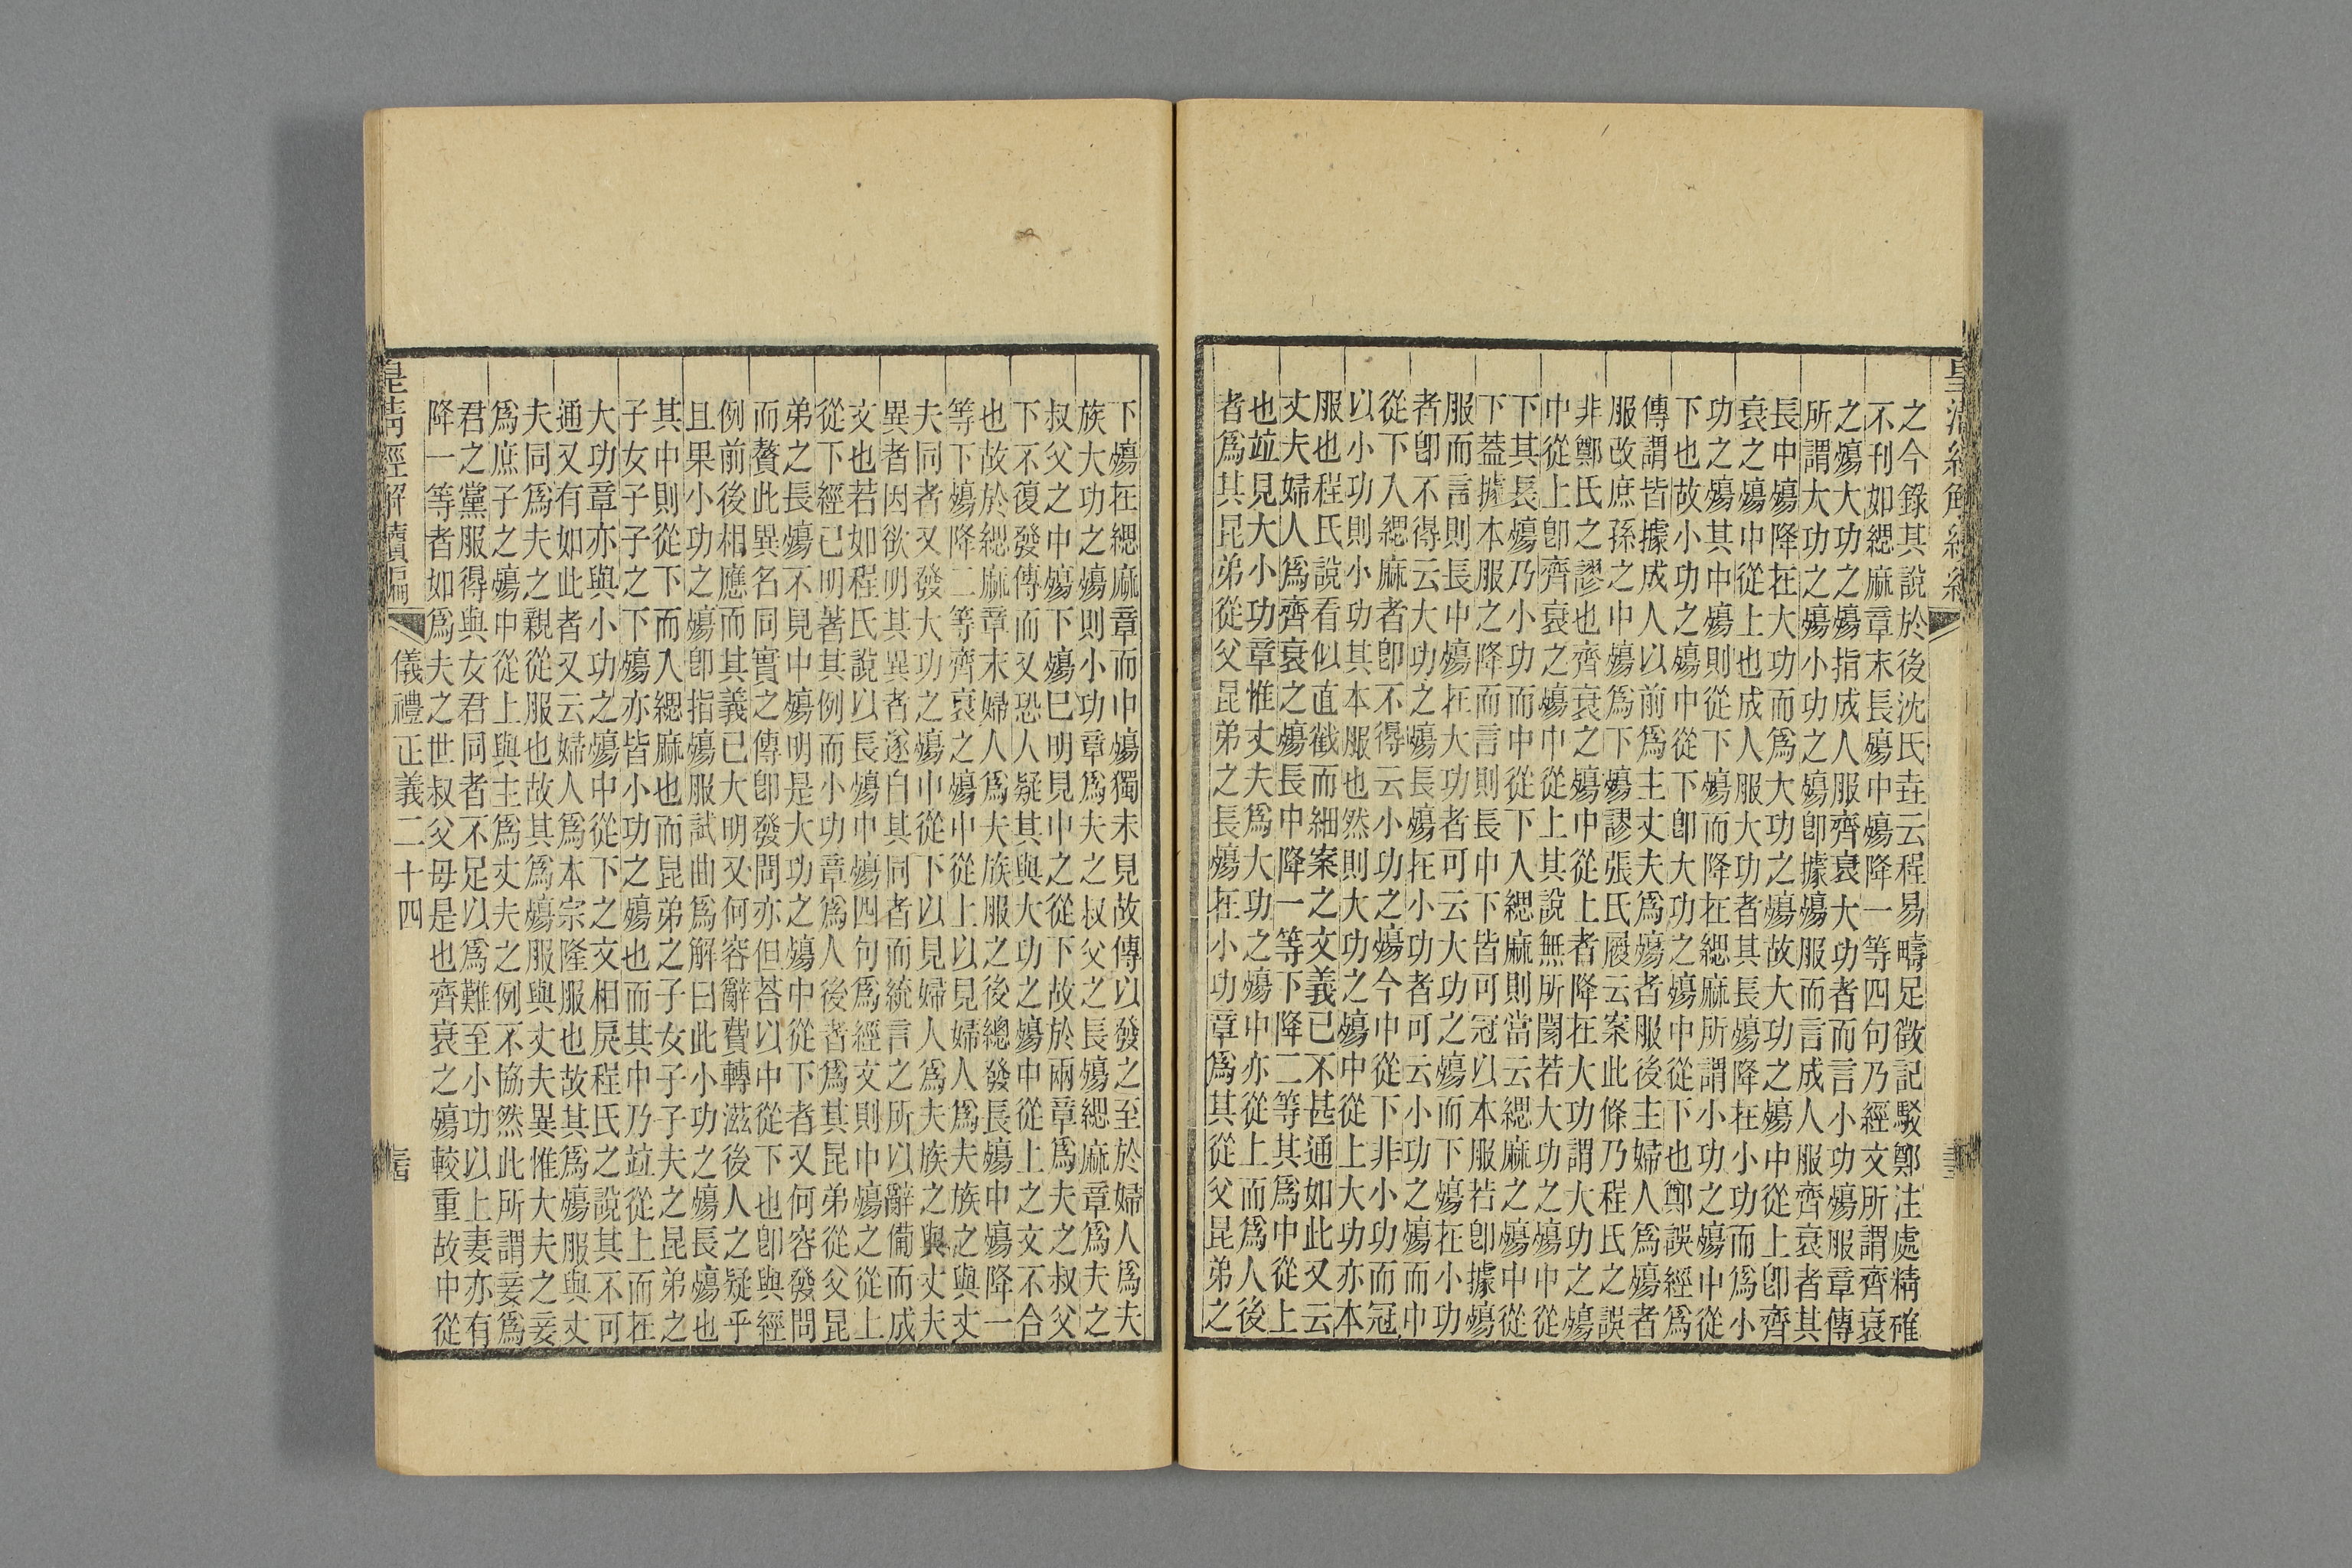 皇清經解續編
之今錄其說於後沈氏垚云程易疇足徵記駁鄭注處精確
不刊如緦麻章末長殤中殤降一等四句乃經文所謂齊衰
之殤大功之殤指成人服齊衰大功者而言小功殤服章傳
所謂大功之殤小功之殤卽據殤服而言成人服齊衰者其
長中殤降在大功而爲大功之殤故大功之殤中從上卽齊
衰之殤中從上也成人服大功者其長殤降在小功而爲小
功之殤其中殤則從下殤而降在緦麻所謂小功之殤中從
下也故小功之殤中從下卽大功之殤中從下也鄭誤經爲
傳謂皆據成人以前爲主丈夫爲殤者服後主婦人爲殤者
服改庶孫之中殤爲下殤謬張氏履云案此條乃程氏之誤
非鄭氏之謬也齊衰之殤中從上者降在大功謂大功之殤
中從上卽齊衰之殤中從上其說無所閡若大功之殤中從
下其長殤乃小功而中從下入緦麻則當云緦麻之殤中從
下葢據本服之降而言則長中下皆可冠以本服若卽據殤
服而言則長中殤在大功者可云大功之殤而下殤在小功
者卽不得云大功之殤長殤在小功者可云小功之殤而中
從下入緦麻者卽不得云小功之殤今中從下非小功而冠
以小功則小功其本服也然則大功之殤中從上大功亦本
服也程氏說看似直截而細案之文義已不甚通如此又云
丈夫婦人爲齊衰之殤長中降一等下降二等其爲中從上
也竝見大小功章惟丈夫爲大功之殤中亦從上而爲人後
者爲其昆弟從父昆弟之長殤在小功章爲其從父昆弟之
下殤在緦麻章而中殤獨未見故傳以發之至於婦人爲夫之
族大功之殤則小功章爲夫之叔父之長殤緦麻章爲夫之
叔父之中殤下殤已明見中之從下故於兩章爲夫之叔父
下不復發傳而又恐人疑其與大功之殤中從上之文不合
也故於緦麻章末婦人爲夫族服之後總發長殤中殤降一
等下殤降二等齊衰之殤中從上以見婦人爲夫族之與丈
夫同者又發大功之殤中從下以見婦人爲夫族之與丈夫
異者因欲明其異者遂白其同者而統言之所以辭備而成
文也若如程氏說以長殤中殤四句爲經文則中殤之從上
從下經已明著其例而小功章爲人後者爲其昆弟從父昆
弟之長殤不見中殤明是大功之殤中從下者又何容發問
而贅此異名同實之傳卽發問亦但荅以中從下也卽與經
例前後相應而其義已大明又何容辭費轉滋後人之疑乎
且果小功之殤卽指殤服試曲爲解曰此小功之殤長殤也
其中則從下而入緦麻也而昆弟之子女子子夫之昆弟之
子女子子之下殤亦皆小功之殤也而其中乃竝從上而在
大功章亦與小功之殤中從下之文相戾程氏之說其不可
通又有如此者又云婦人爲本宗降服也故其爲殤服與丈
夫同爲夫之親從服也故其爲殤服與丈夫異惟大夫之妾
爲庶子之殤中從上與主爲丈夫之例不協然此所謂妾爲
君之黨服得與女君同者不足以爲難至小功以上妻亦有
降一等者如爲夫之世叔父母是也齊衰之殤較重故中從
皇清經解續編 儀禮正義二十四